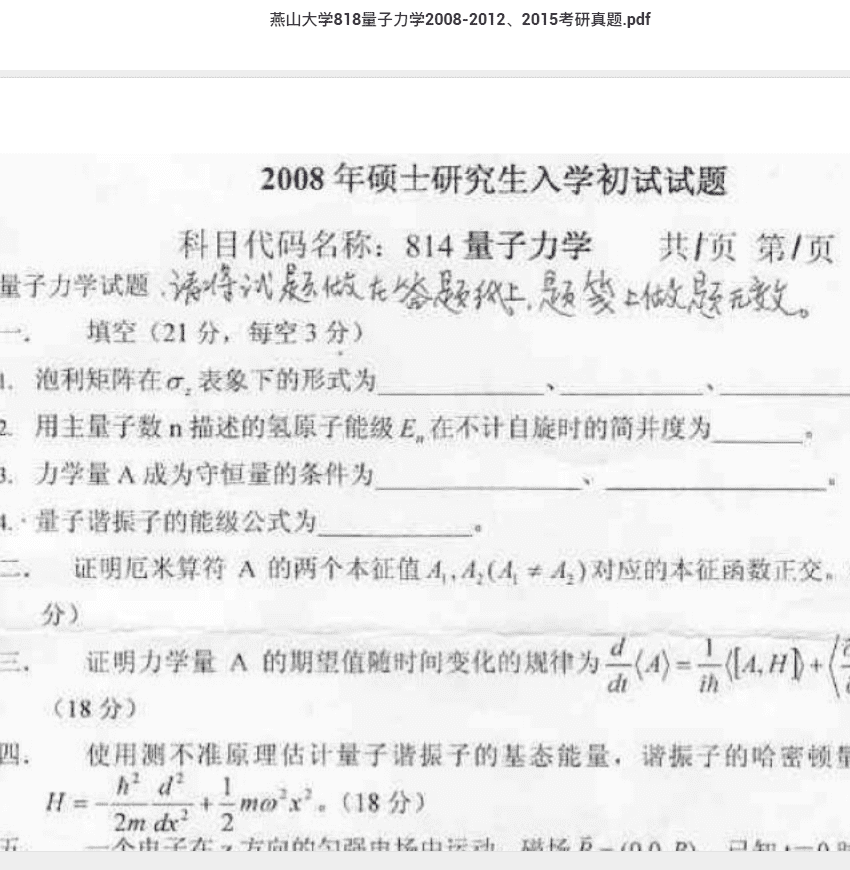 燕山大学818量子力学2008-2012、2015考研真题.pdf
2008 年硕士研究生入学初试试题
科目代码名称：814 量子力学 共1页 第1页
量子力学试题 .请将试题做在答题纸上,题签上做题无效。
一. 填空（21 分，每空 3 分）
1. 泡利矩阵在σz表象下的形式为____________、____________、____________
2. 用主量子数 n 描述的氢原子能级 Eₙ 在不计自旋时的简并度为_______。
3. 力学量 A 成为守恒量的条件为________________、________________。
4. 量子谐振子的能级公式为____________。
二. 证明厄米算符 A 的两个本征值 A₁,A₂(A₁ ≠ A₂)对应的本征函数正交。
分）
三. 证明力学量 A 的期望值随时间变化的规律为 d/dt⟨A⟩ = 1/iħ⟨[A,H]⟩ + ⟨
（18 分）
四. 使用测不准原理估计量子谐振子的基态能量，谐振子的哈密顿量
H = -ħ²/2m d²/dx² + 1/2 mω²x²。（18 分）
五. 一个电子在 z 方向的匀强电场中运动，磁场 B = (0,0,B)，已知 t=0 时